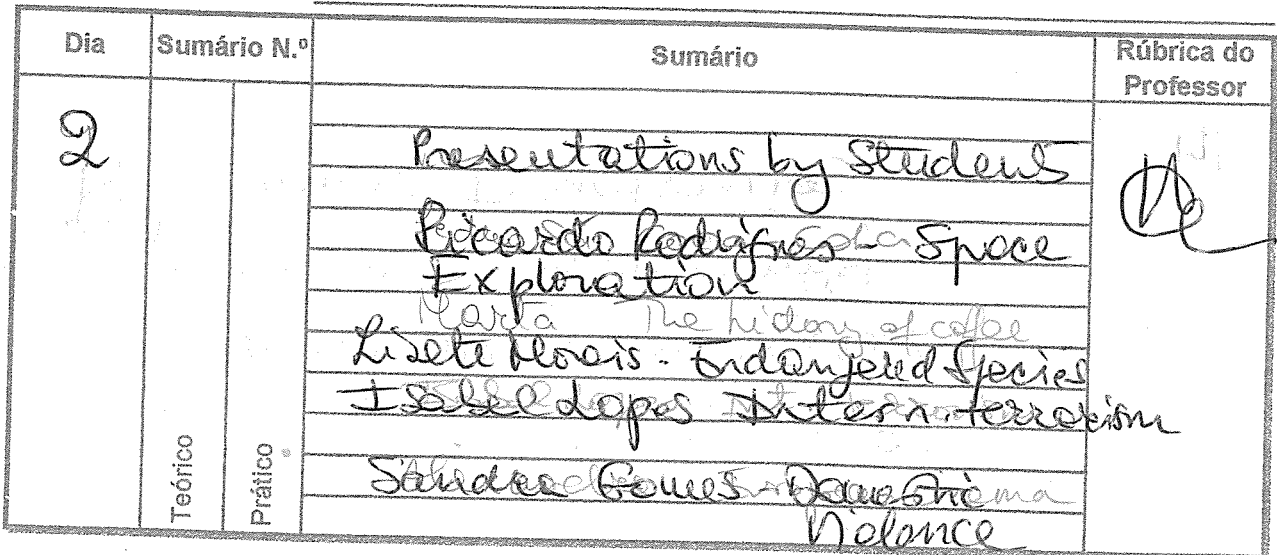 Dia Sumário N.º Sumário Rúbrica do Professor
2
Presentations by Students
Ricardo Rodrigues - Space
Exploration
Marta The history of coffee
Lisete Morais - Endangered Species
Isabel Lopes Intern. terrorism
Sandra Gomes - Domestic
Violence
Teórico
Prático